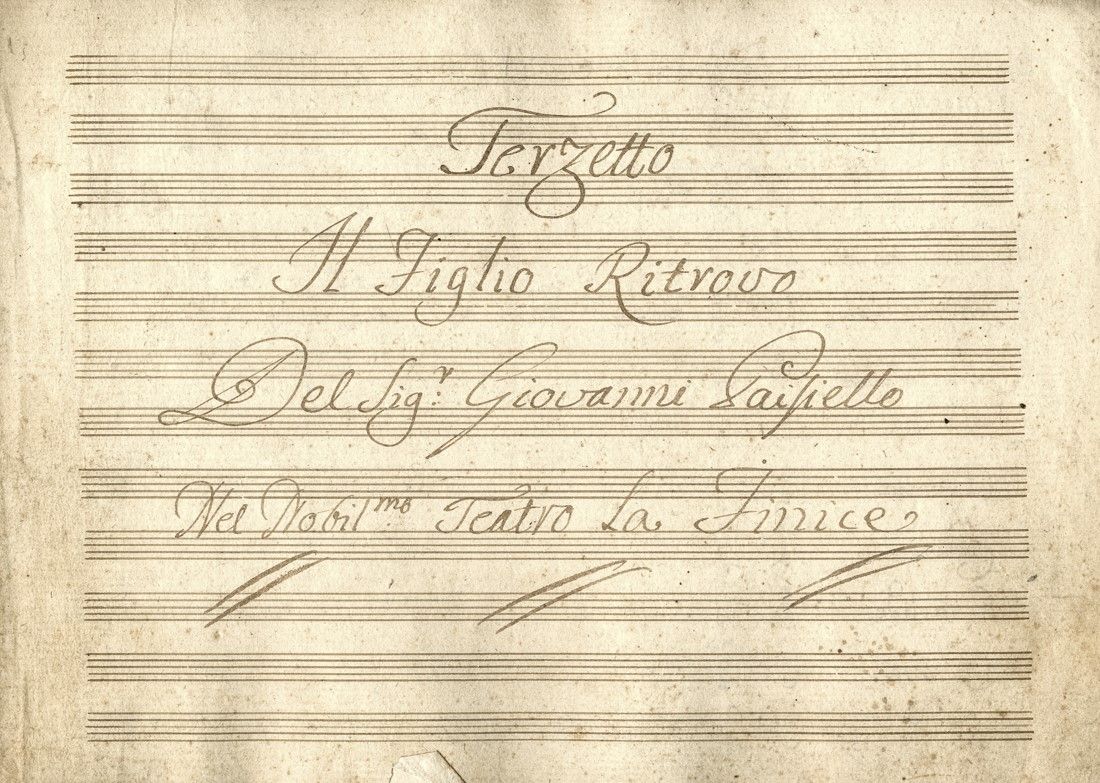 Terzetto
Il Figlio Ritrovo
Del Sig:r Giovanni Paisiello
Nel Nobil.mo Teatro La Finice